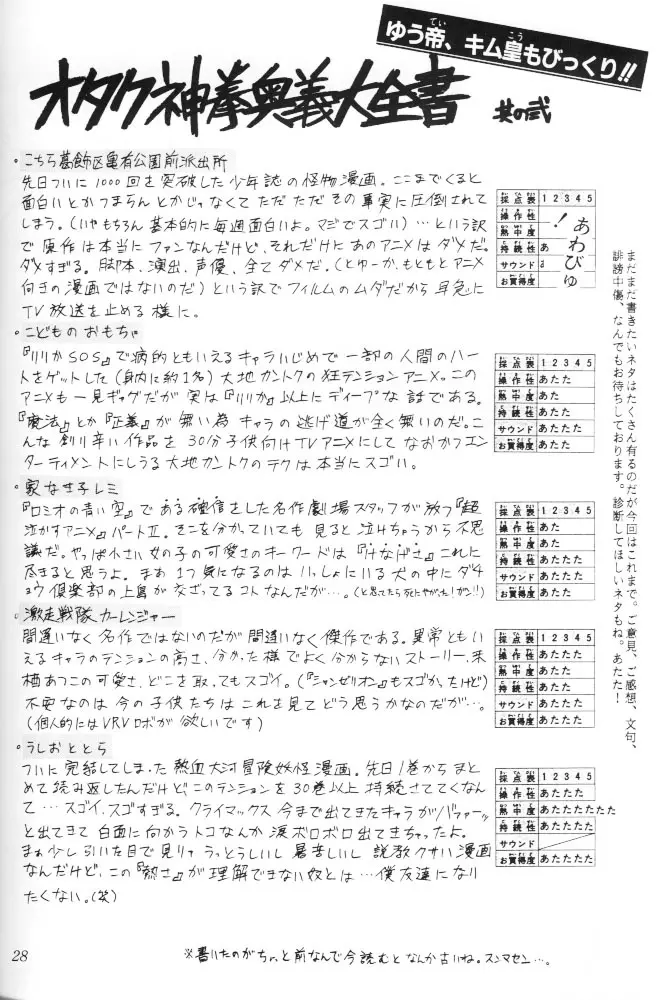 ゆう帝、キム皇もびっくり!!
オタク神拳奥義大全書 其の弐
・こちら葛飾区亀有公園前派出所
先日ついに1000回を突破した少年誌の怪物漫画。ここまでくると
面白いとかつまらんとかじゃなくてただただその事実に圧倒されて
しまう。(いやもちろん基本的に毎週面白いよ。マジでスゴい)…という訳
で原作は本当にファンなんだけど、それだけにあのアニメはダメだ。
ダメすぎる。脚本、演出、声優、全てダメだ。(とゆーか、もともとアニメ
向きの漫画ではないのだ)という訳でフィルムのムダだから早急に
TV放送を止める様に。
採点表 1 2 3 4 5
操作性
熱中度
持続性 あ
サウンド
お買得度
あわびゅ!
・こどものおもちゃ
『りりかSOS』で病的ともいえるキャラいじめで一部の人間のハー
トをゲットした(身内に約1名)大地カントクの狂テンションアニメ。この
アニメも一見ギャグだが実は『りりか』以上にディープな話である。
『魔法』とか『正義』が無い為キャラの逃げ道が全く無いのだ。こ
んな創り辛い作品を30分子供向けTVアニメにしてなおかつエン
ターティメントにしうる大地カントクのテクは本当にスゴい。
採点表 1 2 3 4 5
操作性 あたた
熱中度 あた
持続性 あたた
サウンド あたたた
お買得度 あたたた
・家なき子レミ
『ロミオの青い空』である確信をした名作劇場スタッフが放つ『超
泣かすアニメ』パートⅡ。そこを分かっていても見ると泣けちゃうから不思
議だ。やっぱ小さい女の子の可愛さのキーワードは『けなげさ』これに
尽きると思うよ。まあ1つ気になるのはいっしょにいる犬の中にダチ
ョウ倶楽部の上島がなざってるコトなんだが…。(と思ってたら死にやがった!ガン!!)
採点表 1 2 3 4 5
操作性 あた
熱中度 あたた
持続性 あたたたた
サウンド あたたた
お買得度 あたたたた
・激走戦隊カーレンジャー
間違いなく名作ではないのだが間違いなく傑作である。異常ともい
えるキャラのテンションの高さ、分かった様でよく分からないストーリー、来
栖あつこの可愛さ、どこを取ってもスゴイ。(『シャンゼリオン』もスゴかったけど)
不安なのは今の子供たちはこれを見てどう思うかなのだが…。
(個人的にはVRVロボが欲しいです)
採点表 1 2 3 4 5
操作性 あたたたた
熱中度 あたたた
持続性 あたたた
サウンド あたたた
お買得度 あたたた
・うしおととら
ついに完結してしまった熱血大河冒険妖怪漫画。先日1巻からまと
めて読み返したんだけどこのテンションを30巻以上持続させてくなん
て…スゴイ、スゴすぎる。クライマックス今まで出てきたキャラがバァァーッ
と出てきて白面に向かうトコなんか涙ボロボロ出てきちゃったよ。
まぁ少し引いた目で見りゃうっとうしいし暑苦しいし説教クサい漫画
なんだけど、この『熱さ』が理解できない奴とは…僕友達になり
たくない。(笑)
採点表 1 2 3 4 5
操作性 あたたたた
熱中度 あたたたたたた
持続性 あたたたた
サウンド
お買得度 あたたたた
まだまだ書きたいネタはたくさん有るのだが今回はこれまで。ご意見、ご感想、文句、
誹謗中傷、なんでもお待ちしております。診断してほしいネタもね。あたた!
28
※書いたのがちょっと前なんで今読むとなんか古いね。スンマセン…。